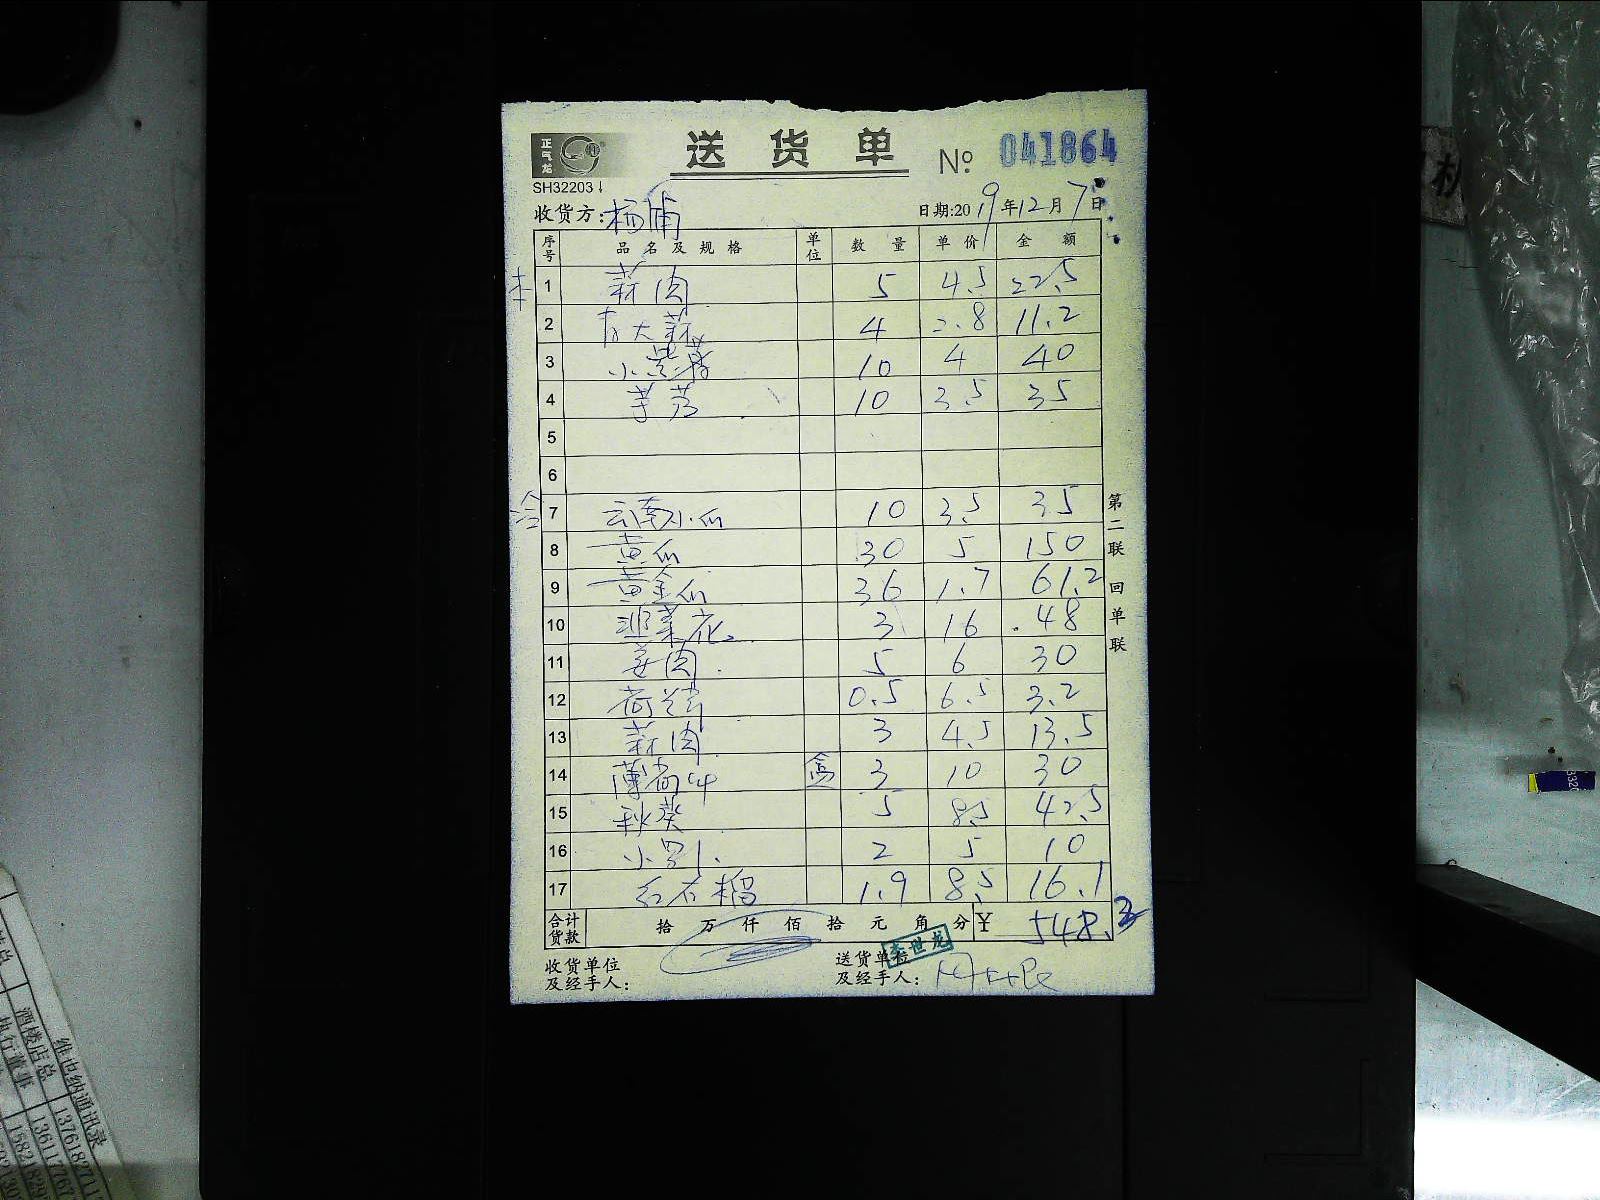 正气龙
送 货 单
№ 041864
SH32203↓
收货方: 杨浦
日期:2019年12月7日
序号 品名及规格 单位 数量 单价 金额
本
1 蒜肉 5 4.5 22.5
2 大蒜 4 2.8 11.2
3 小 10 4 40
4 芋艿 10 3.5 35
5
6
冷
7 云南小瓜 10 3.5 35
8 黄瓜 30 5 150
9 黄金瓜 36 1.7 61.2
10 韭菜花 3 16 48
11 姜肉 5 6 30
12 0.5 6.5 3.2
13 蒜肉 3 4.5 13.5
14 薄荷叶 盒 3 10 30
15 秋葵 5 8.5 42.5
16 小 2 5 10
17 红石榴 1.9 8.5 16.1
合计货款 拾 万 仟 佰 拾 元 角 分 ¥ 548.3
收货单位及经手人:
送货单位及经手人:
李世龙
第二联 回单联
维也纳通讯录
酒楼店总
执行董事